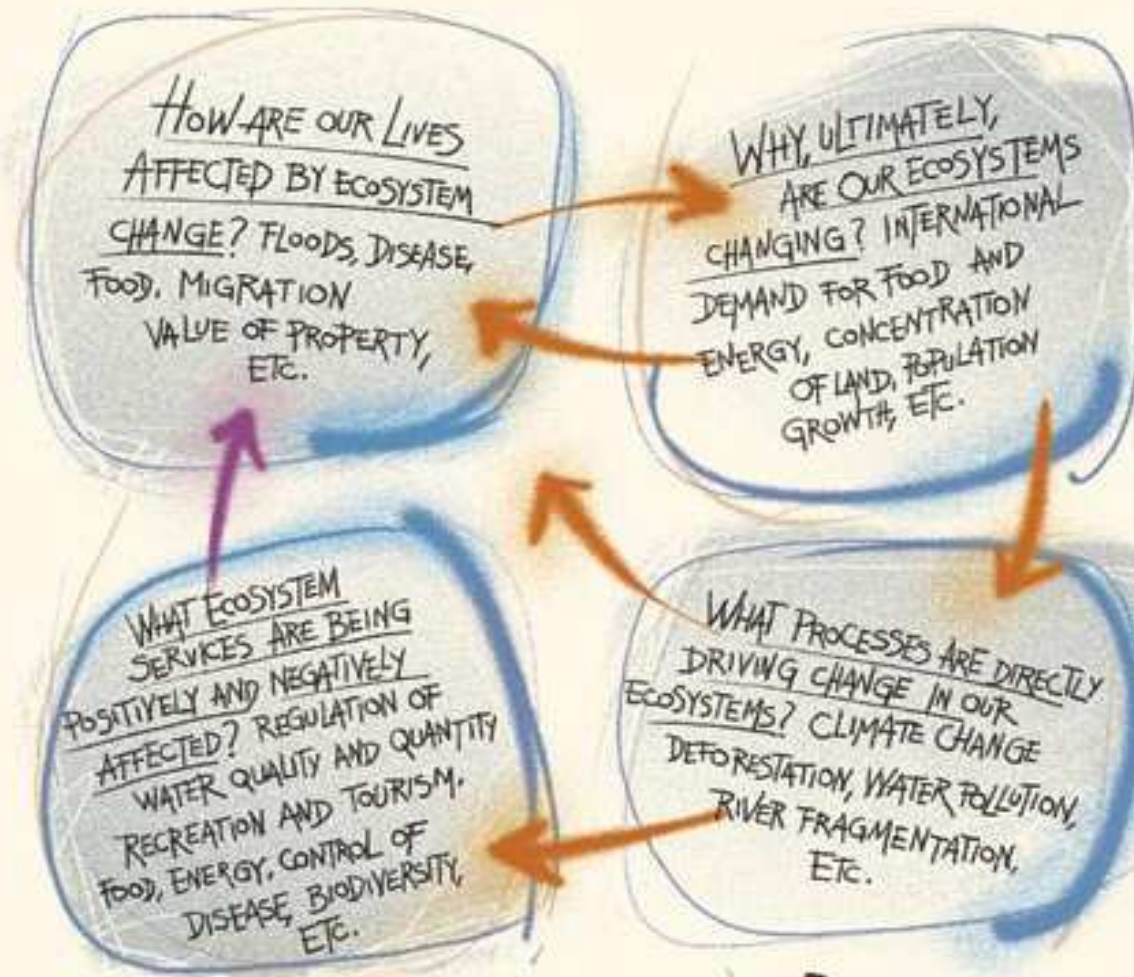 HOW ARE OUR LIVES
AFFECTED BY ECOSYSTEM
CHANGE? FLOODS, DISEASE,
FOOD. MIGRATION
VALUE OF PROPERTY,
ETC.
WHY, ULTIMATELY,
ARE OUR ECOSYSTEMS
CHANGING? INTERNATIONAL
DEMAND FOR FOOD AND
ENERGY, CONCENTRATION
OF LAND, POPULATION
GROWTH, ETC.
WHAT ECOSYSTEM
SERVICES ARE BEING
POSITIVELY AND NEGATIVELY
AFFECTED? REGULATION OF
WATER QUALITY AND QUANTITY
RECREATION AND TOURISM.
FOOD, ENERGY, CONTROL OF
DISEASE, BIODIVERSITY,
ETC.
WHAT PROCESSES ARE DIRECTLY
DRIVING CHANGE IN OUR
ECOSYSTEMS? CLIMATE CHANGE
DEFORESTATION, WATER POLLUTION,
RIVER FRAGMENTATION,
ETC.